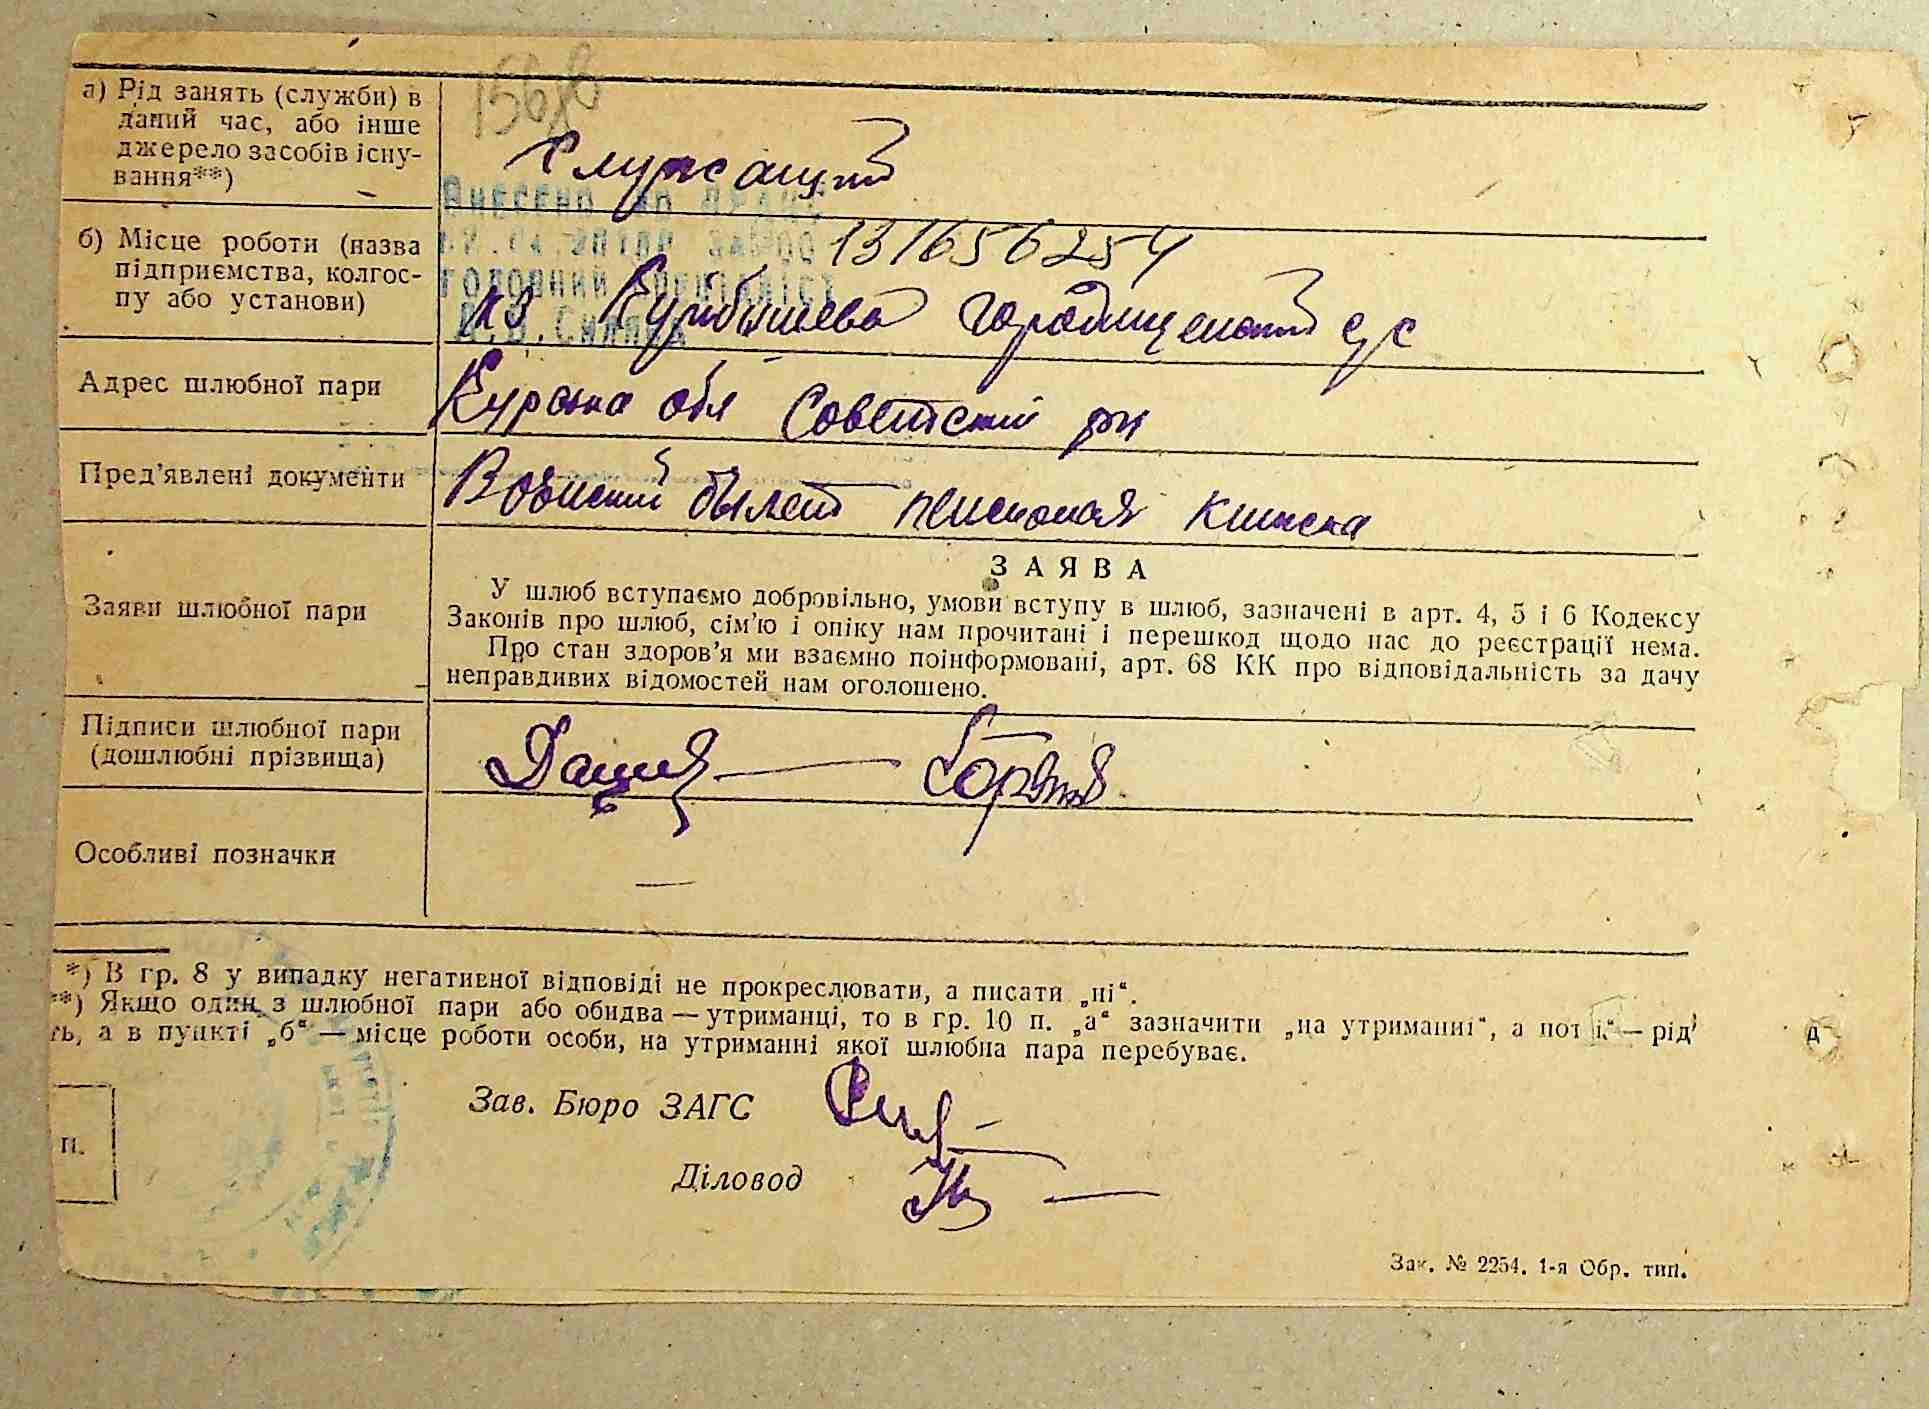 156
а) Рід занять (служби) в
даний час, або інше
джерело засобів існу-
вання**)
Служащий
Внесено до ДРАЦС
головний спеціаліст
131656254
б) Місце роботи (назва
підприємства, колгос-
пу або установи)
кз Куйбышева Городищенский с/с
Адрес шлюбної пари
Курская обл Советский рн
Пред'явлені документи
Воинский былет пенсионая книжка
ЗАЯВА
Заяви шлюбної пари
У шлюб вступаємо добровільно, умови вступу в шлюб, зазначені в арт. 4, 5 і 6 Кодексу
Законів про шлюб, сім'ю і опіку нам прочитані і перешкод щодо нас до реєстрації нема.
Про стан здоров'я ми взаємно поінформовані, арт. 68 КК про відповідальність за дачу
неправдивих відомостей нам оголошено.
Підписи шлюбної пари
(дошлюбні прізвища)
Особливі позначки
—
*) В гр. 8 у випадку негативної відповіді не прокреслювати, а писати „ні“.
**) Якщо один з шлюбної пари або обидва — утриманці, то в гр. 10 п. „а“ зазначити „на утриманні“, а потім — рід
ть, а в пункті „б“ — місце роботи особи, на утриманні якої шлюбна пара перебуває.
Зав. Бюро ЗАГС
п.
Діловод
Зак. № 2254. 1-я Обр. тип.